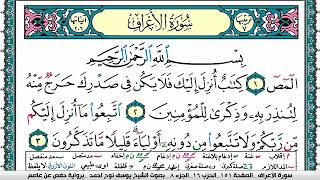 سُورَةُ الأَعْرَافِ
بِسْمِ اللَّهِ الرَّحْمَٰنِ الرَّحِيمِ
الٓمٓصٓ ١ كِتَٰبٌ أُنزِلَ إِلَيْكَ فَلَا يَكُن فِي صَدْرِكَ حَرَجٌ مِّنْهُ
لِتُنذِرَ بِهِۦ وَذِكْرَىٰ لِلْمُؤْمِنِينَ ٢ ٱتَّبِعُوا۟ مَآ أُنزِلَ إِلَيْكُم
مِّن رَّبِّكُمْ وَلَا تَتَّبِعُوا۟ مِن دُونِهِۦٓ أَوْلِيَآءَ ۗ قَلِيلًا مَّا تَذَكَّرُونَ ٣
سورة الأعراف، الصفحة ١٥١، الحزب ١٦، الجزء ٨، بصوت الشيخ يوسف نوح أحمد، برواية حفص عن عاصم